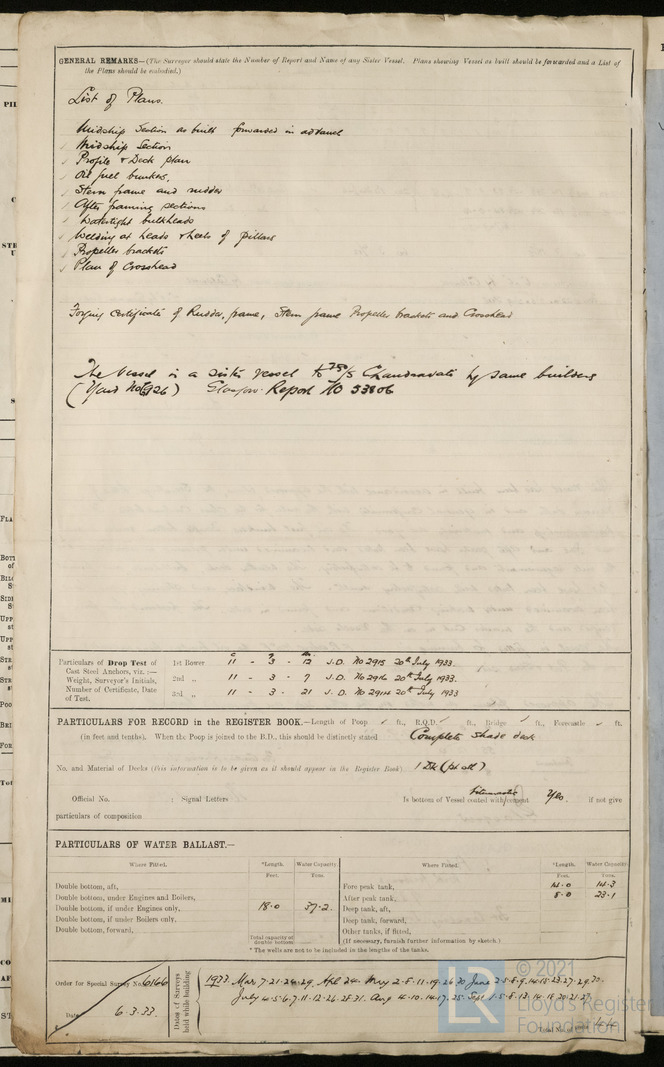 GENERAL REMARKS—(The Surveyor should state the Number of Report and Name of any Sister Vessel. Plans showing Vessel as built should be forwarded and a List of
the Plans should be embodied.)
List of Plans.
Midship Section as built forwarded in advance
Midship Section
Profile & Deck plan
Oil fuel bunkers.
Stern frame and rudder
After framing sections
Watertight bulkheads
Welding at heads & heels of pillars
Propeller brackets
Plan of Crosshead
Forging Certificate of Rudder, frame, Stern frame Propeller brackets and Crosshead
The Vessel is a sister vessel to Chandravati by same builders
(Yard No 926) Glasgow Report No 53806
Particulars of Drop Test of
Cast Steel Anchors, viz.:—
Weight, Surveyor's Initials,
Number of Certificate, Date
of Test.
1st Bower 11 - 3 - 12 J.D. No 2915 20th July 1933.
2nd „ 11 - 3 - 7 J.D. No 2916 20th July 1933.
3rd „ 11 - 3 - 21 J.D. No 2914 20th July 1933
PARTICULARS FOR RECORD in the REGISTER BOOK.—Length of Poop ft., R.Q.D. ft., Bridge ft., Forecastle ft.
(in feet and tenths). When the Poop is joined to the B.D., this should be distinctly stated Complete shade deck
No. and Material of Decks (this information is to be given as it should appear in the Register Book) 1 Dk
Official No. ; Signal Letters Is bottom of Vessel coated with cement Yes. if not give
particulars of composition
PARTICULARS OF WATER BALLAST.—
Where Fitted. *Length. Water Capacity Where Fitted. *Length. Water Capacity
Feet. Tons. Feet. Tons.
Double bottom, aft, Fore peak tank, 14.0 14.3
Double bottom, under Engines and Boilers, After peak tank, 8.0 23.1
Double bottom, if under Engines only, 18.0 37.2. Deep tank, aft,
Double bottom, if under Boilers only, Deep tank, forward,
Double bottom, forward, Other tanks, if fitted,
Total capacity of double bottom (If necessary, furnish further information by sketch.)
* The wells are not to be included in the lengths of the tanks.
Order for Special Survey No. 6166
Date 6.3.33
Dates of Surveys
held while building
1933 Mar 7.21.24.29. Apl 24. May 2.8.11.19.26.30 June 2.5.8.9.14.15.23.27.29.30.
July 4.5.6.7.11.12.26.28.31. Aug 4.10.14.17.25. Sept 1.5.8.13.14.18.20.21.27
Total No. of visits 44
© 2021
LR
Lloyd's Register
Foundation